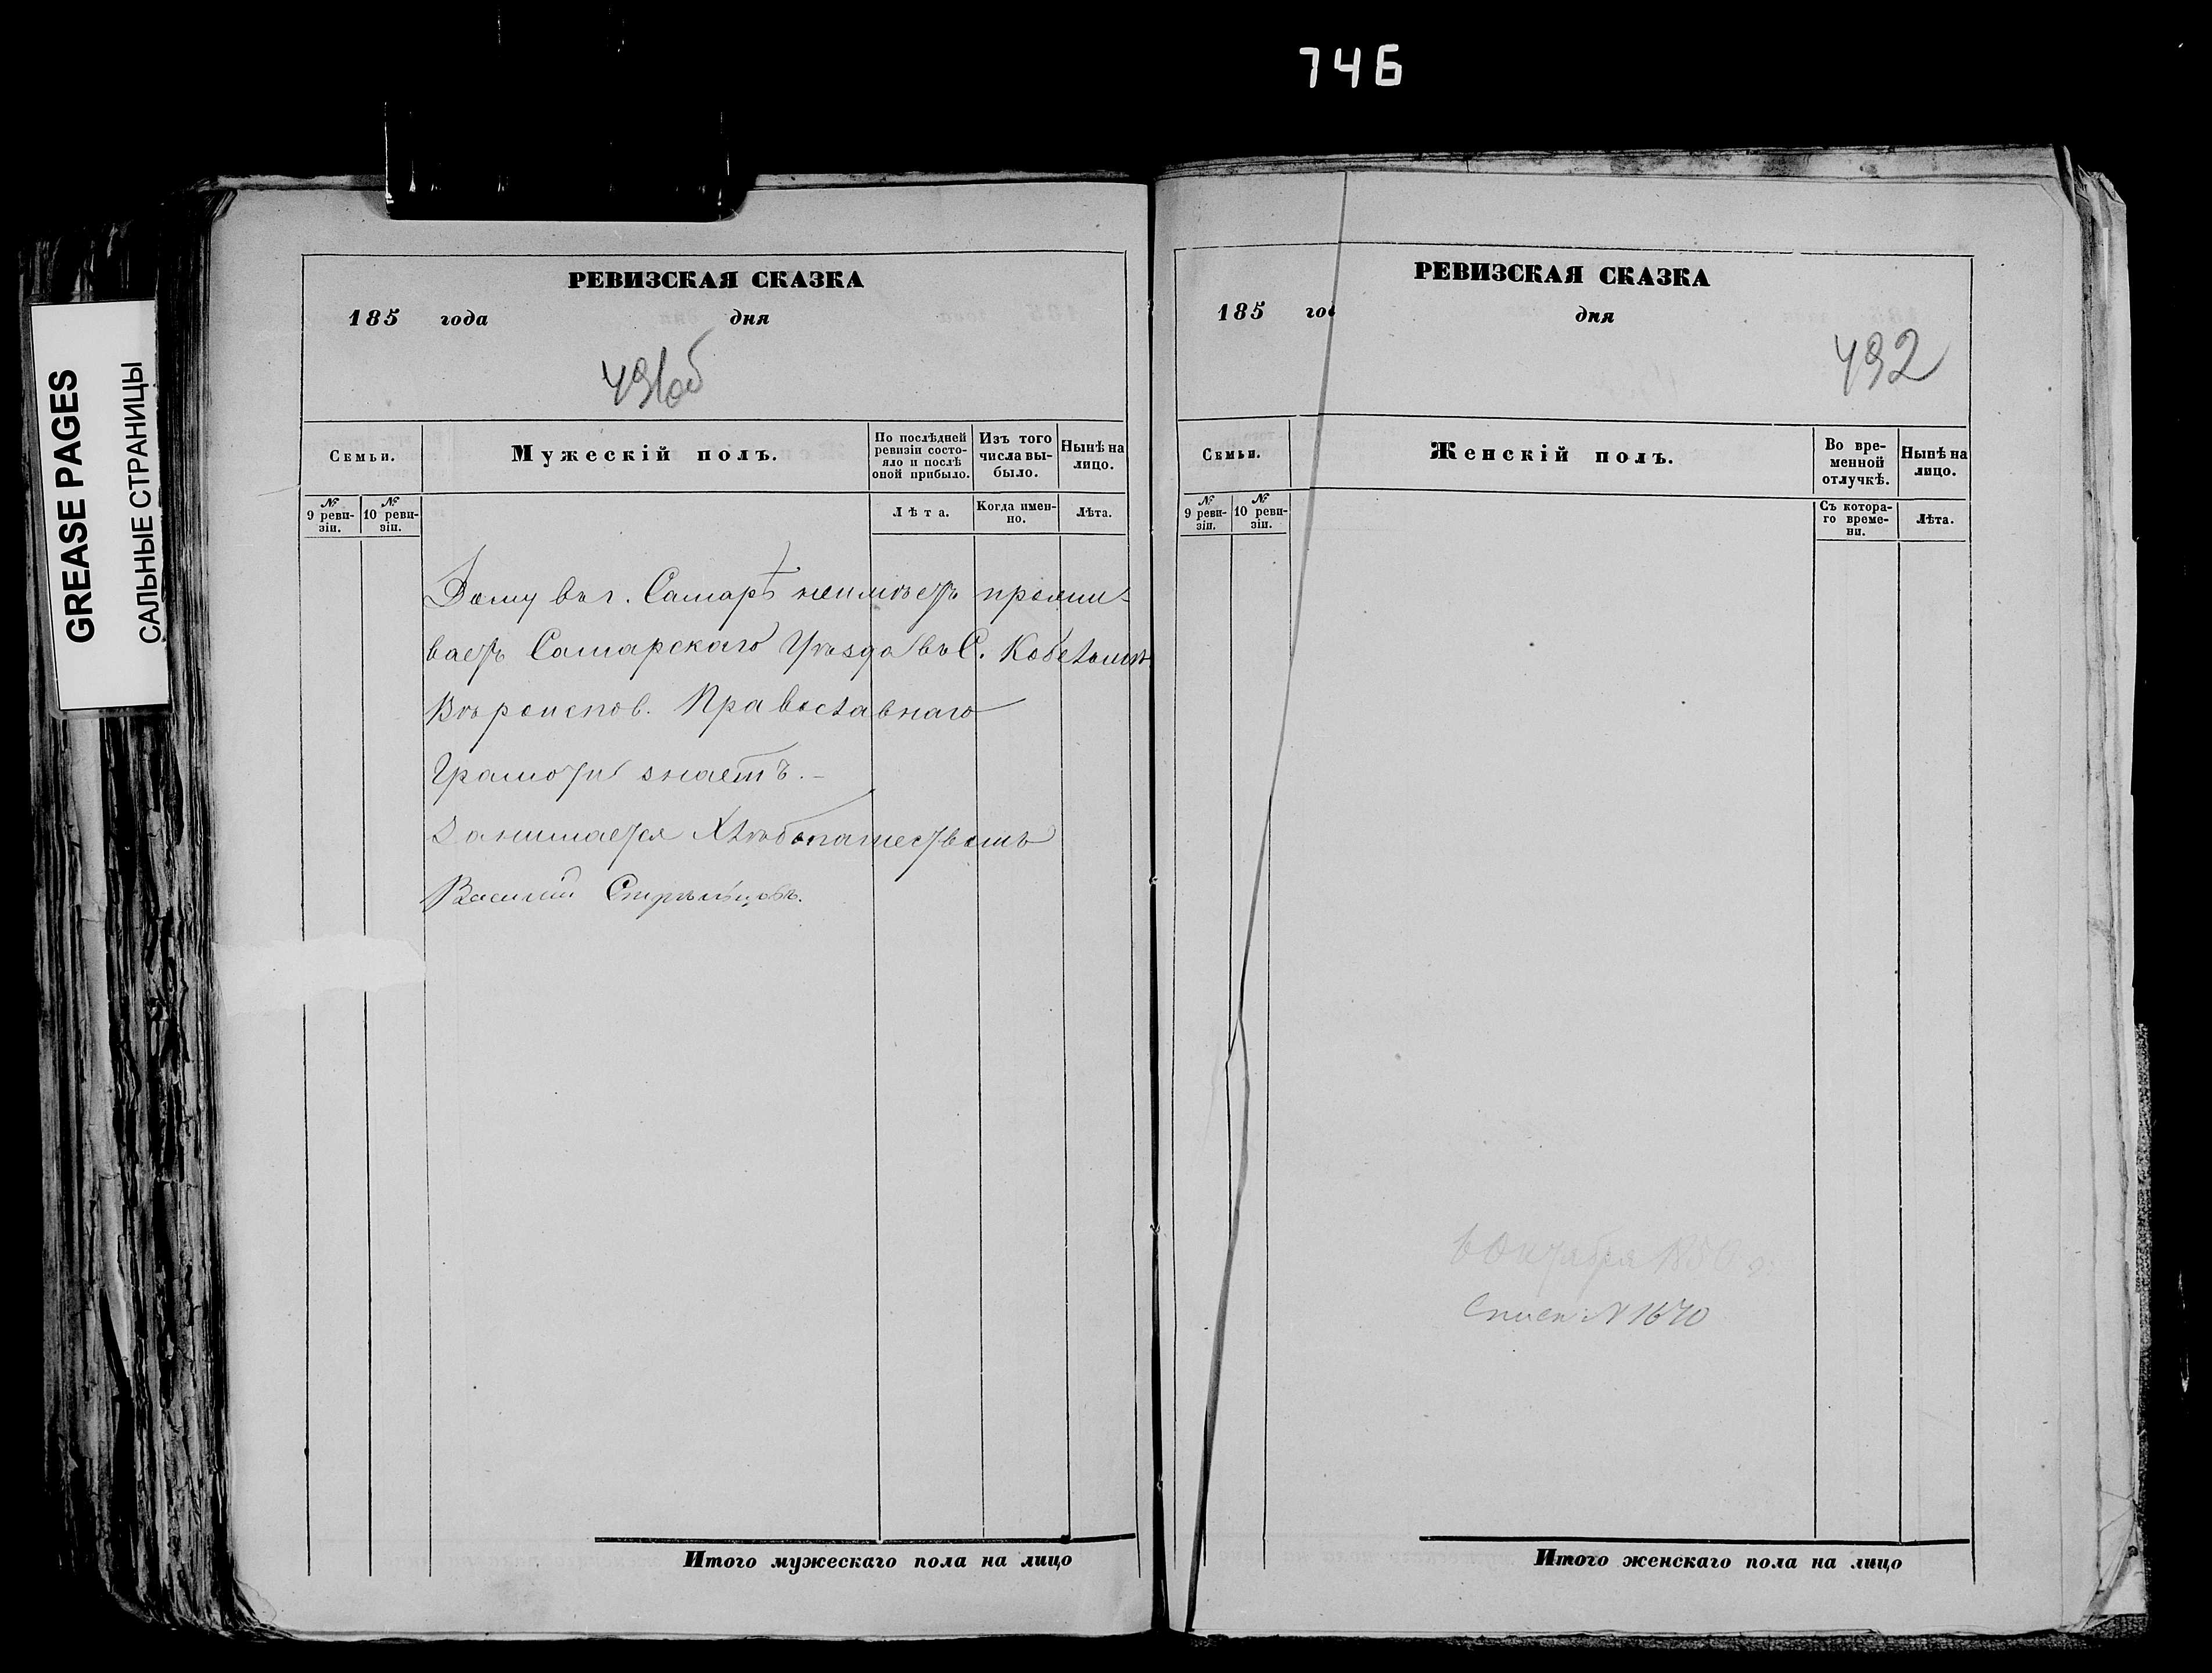 746
GREASE PAGES
САЛЬНЫЕ СТРАНИЦЫ
РЕВИЗСКАЯ СКАЗКА
185 года дня
491об
Семьи.
Мужескій полъ.
По послѣдней ревизіи состо-
яло и послѣ
оной прибыло.
Изъ того
числа вы-
было.
Нынѣ на
лицо.
№
9 реви-
зіи.
№
10 реви-
зіи.
Лѣта.
Когда имен-
но.
Лѣта.
Дому въ г. Самарѣ неимѣетъ прожи-
ваетъ Самарскаго Уѣзда въ С.
Вѣроиспов. Православнаго
Грамотѣ знаетъ.-
Занимается Хлѣбопашествомъ
Василий Стрѣльцовъ.
Итого мужескаго пола на лицо
РЕВИЗСКАЯ СКАЗКА
185 год дня
492
Семьи.
Женскій полъ.
Во вре-
менной
отлучкѣ.
Нынѣ на
лицо.
№
9 реви-
зіи.
№
10 реви-
зіи.
Съ котора-
го време-
ни.
Лѣта.
Октября
№ 1670
Итого женскаго пола на лицо